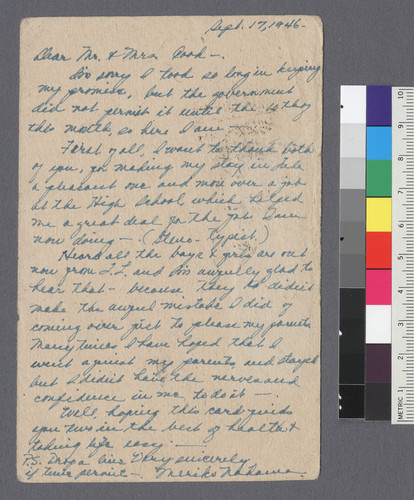 Sept. 17, 1946-
Dear Mr. & Mrs. Good-.
I'm sorry I took so long in keeping
my promise, but the government
did not permit it until the 10th of
this month, so here I am -
First of all, I want to thank both
of you, for making my stay in Tule
a pleasant one and more over a job
at the High School which helped
me a great deal for the job I am
now doing -. (Steno-Typist.)
Heard all the boys & girls are out
now from T.L. and I'm awfully glad to
hear that - because they didn't
make the awful mistake I did of
coming over just to please my parents
Many times I have hoped that I
went against my parents and stayed
but I didn't have the nerves and
confidence in me to do it -.
Well, hoping this card finds
you two in the best of health &
taking life easy -.
P.S. Drop a line Very sincerely
if time permit - Meriko
METRIC 1 2 3 4 5 6 7 8 9 10